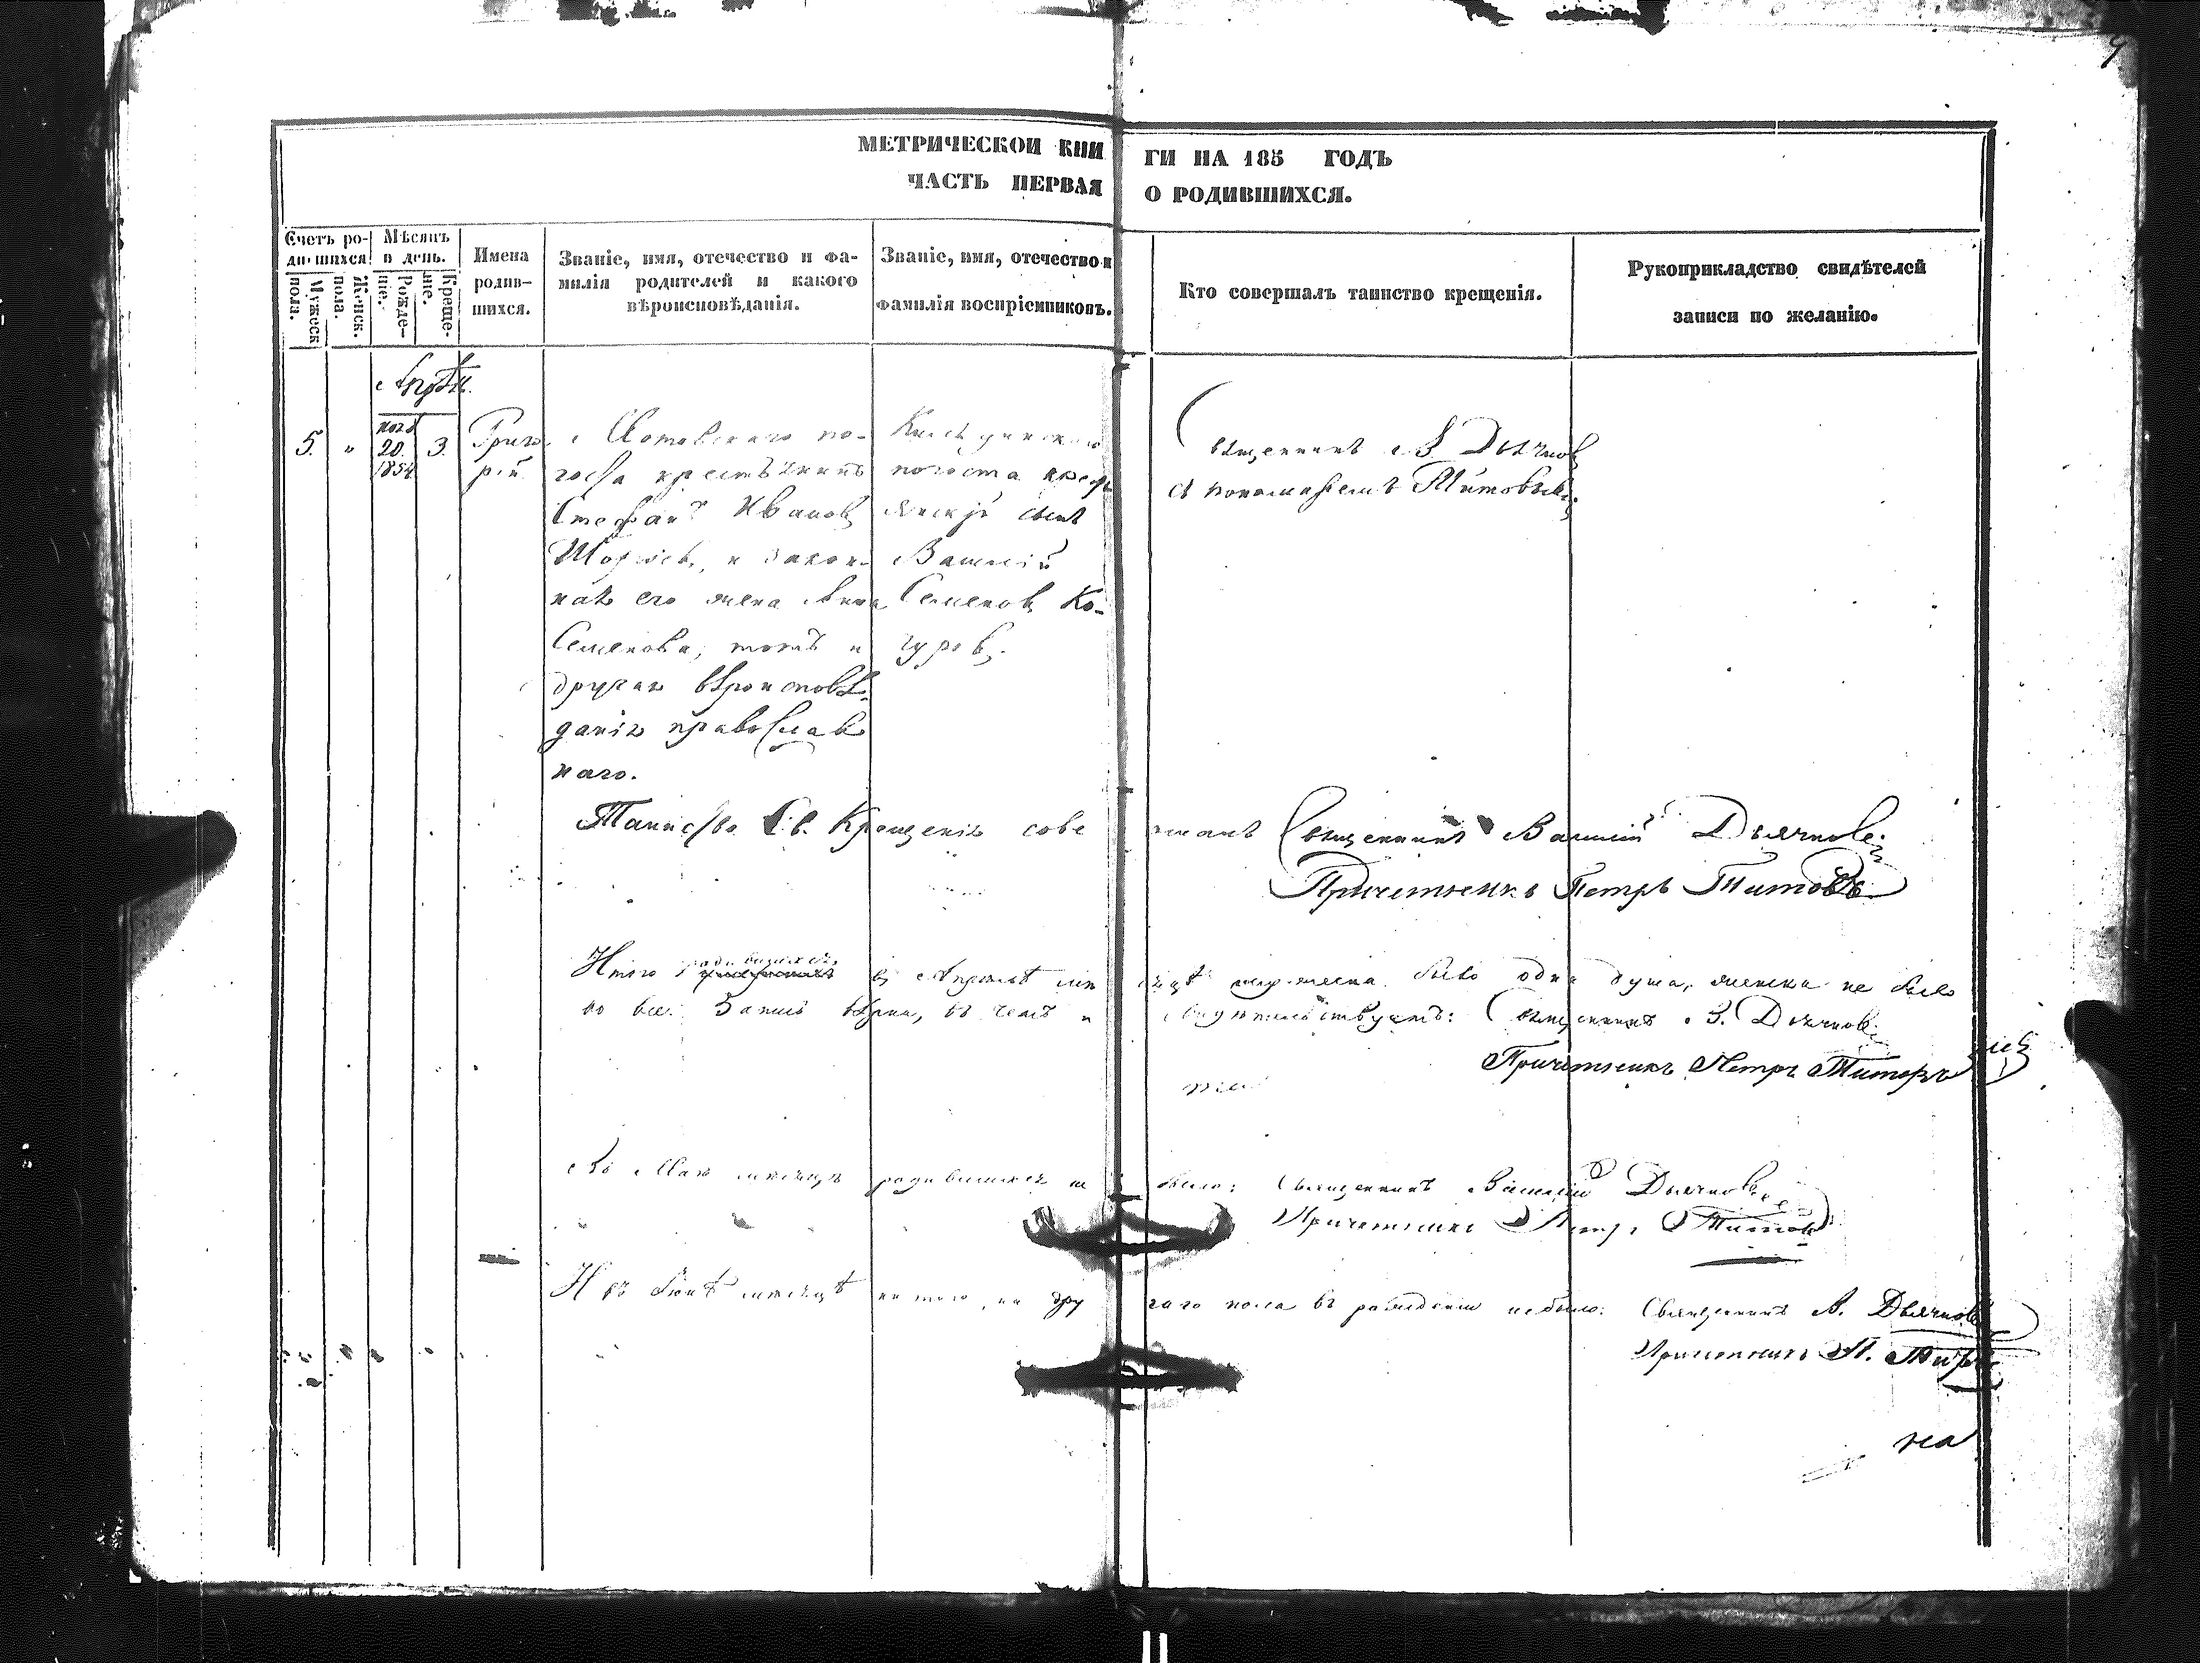 МЕТРИЧЕСКОЙ КНИ ГИ НА 185 ГОДЪ
ЧАСТЬ ПЕРВАЯ О РОДИВШИХСЯ.
Счетъ ро-
дившихся
Мужеск пола.
Женск. пола.
Мѣсяцъ
и день.
Рожде-
ніе.
Креще-
ніе.
Имена
родив-
шихся.
Званіе, имя, отечество и фа-
милія родителей и какого
вѣроисповѣданія.
Званіе, имя, отечество и
фамилія воспріемниковъ.
Кто совершалъ таинство крещенія.
Рукоприкладство свидѣтелей
записи по желанію.
5. " 20. 1854 3.
Григо
рій
госта крестьянинъ
Стефанъ Иванов
и закон-
ная его жена Анна
Семенова, тотъ и
другая вѣроисповѣ-
данія православ
наго.
погоста крест
янскій сынъ
Василій
Семенов Ко-
гуров.
Священникъ В. Дьячков
съ пономаремъ Титовым.
Таинство Св. Крещенія сове ршалъ Священникъ Василій Дьячков.
Причетникъ Петръ Титовъ
Итого родившихся в Апрѣлѣ мѣ сяцѣ мужеска было одна душа, женска не было
во все. Запись вѣрна, въ чемъ и свидѣтельствуемъ: Священникъ В. Дьячков.
Причетникъ Петръ Титовъ
Въ Маѣ мѣсяцѣ родившихся не было: Священникъ Василій Дьячков
Причетникъ Петръ Титов
И въ Іюнѣ мѣсяцѣ ни того, ни дру гаго пола въ рожденіи небыло: Священникъ В. Дьячков
Причетникъ П. Титов
на